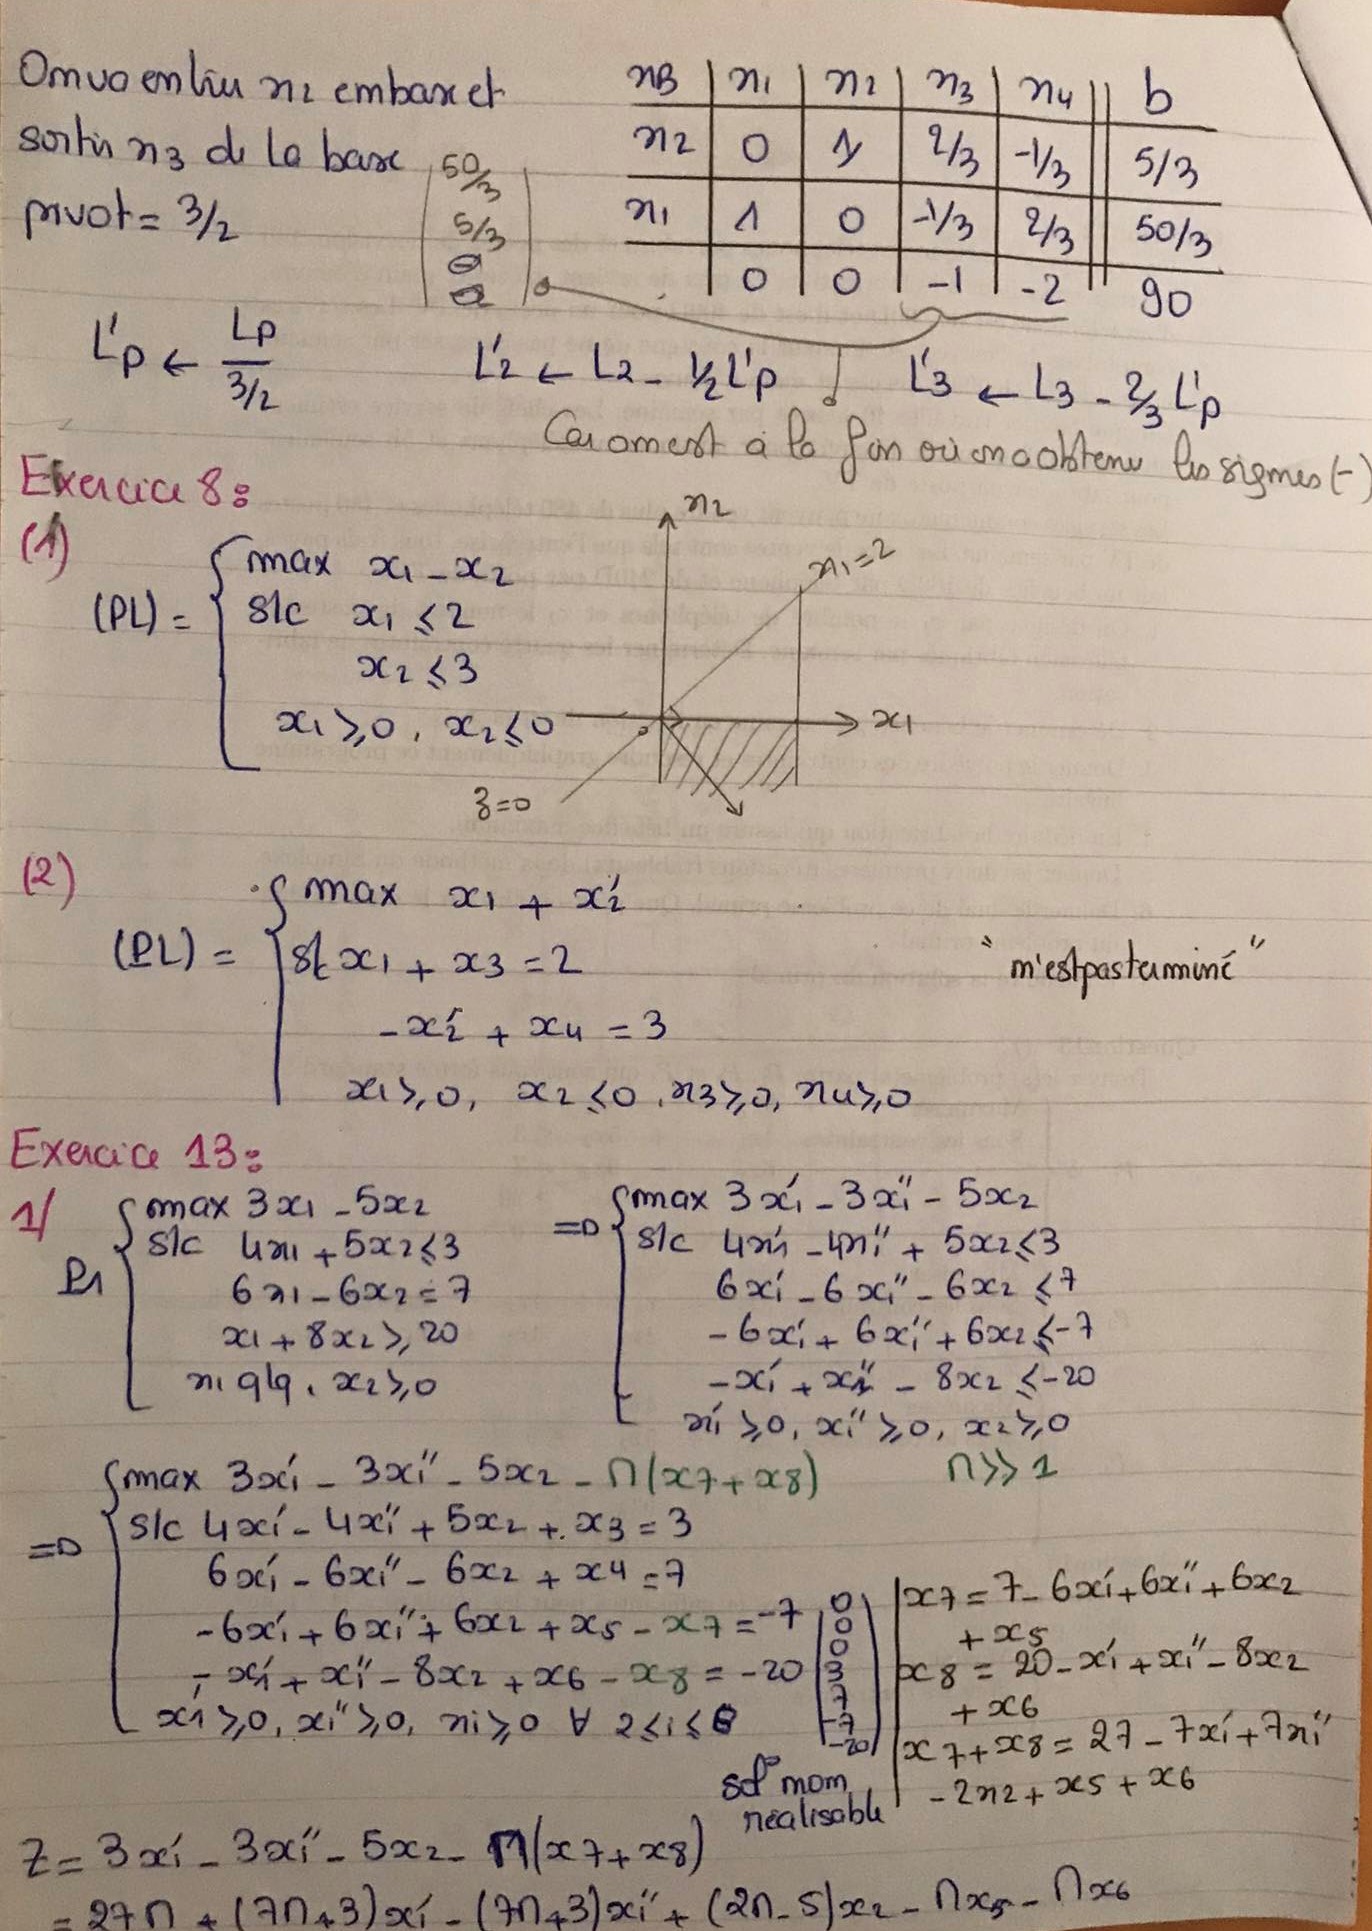 On va entrer x2 en base et
sortir x3 de la base
pivot = 3/2
(50/3 5/3 0 0)
xB | x1 | x2 | x3 | x4 || b
x2 | 0 | 1 | 2/3 | -1/3 || 5/3
x1 | 1 | 0 | -1/3 | 2/3 || 50/3
0 | 0 | -1 | -2 || 90
L'p ← Lp / 3/2    L'2 ← L2 - 1/2 L'p    L'3 ← L3 - 2/3 L'p
Car on est à la fin où on a obtenu les signes (-)
Exercice 8:
(1)
(PL) = { max x1 - x2
s/c x1 ≤ 2
x2 ≤ 3
x1 ≥ 0, x2 ≤ 0
x2
x1 = 2
x1
z = 0
(2)
(PL) = { max x1 + x'2
s/c x1 + x3 = 2
- x'2 + x4 = 3
x1 ≥ 0, x2 ≤ 0, x3 ≥ 0, x4 ≥ 0
"n'est pas terminé"
Exercice 13:
1/
P1 { max 3x1 - 5x2
s/c 4x1 + 5x2 ≤ 3
6x1 - 6x2 = 7
x1 + 8x2 ≥ 20
x1 qlq, x2 ≥ 0
=> { max 3x'1 - 3x''1 - 5x2
s/c 4x'1 - 4x''1 + 5x2 ≤ 3
6x'1 - 6x''1 - 6x2 ≤ 7
-6x'1 + 6x''1 + 6x2 ≤ -7
-x'1 + x''1 - 8x2 ≤ -20
x'1 ≥ 0, x''1 ≥ 0, x2 ≥ 0
=> { max 3x'1 - 3x''1 - 5x2 - M(x7 + x8)    M >> 1
s/c 4x'1 - 4x''1 + 5x2 + x3 = 3
6x'1 - 6x''1 - 6x2 + x4 = 7
-6x'1 + 6x''1 + 6x2 + x5 - x7 = -7
- x'1 + x''1 - 8x2 + x6 - x8 = -20
x'1 ≥ 0, x''1 ≥ 0, xi ≥ 0 ∀ 2 ≤ i ≤ 8
(0 0 0 3 7 -7 -20)
sol° non
réalisable
x7 = 7 - 6x'1 + 6x''1 + 6x2
+ x5
x8 = 20 - x'1 + x''1 - 8x2
+ x6
x7 + x8 = 27 - 7x'1 + 7x''1
- 2x2 + x5 + x6
Z = 3x'1 - 3x''1 - 5x2 - M(x7 + x8)
= 27M + (7M+3)x'1 - (7M+3)x''1 + (2M-5)x2 - Mx5 - Mx6